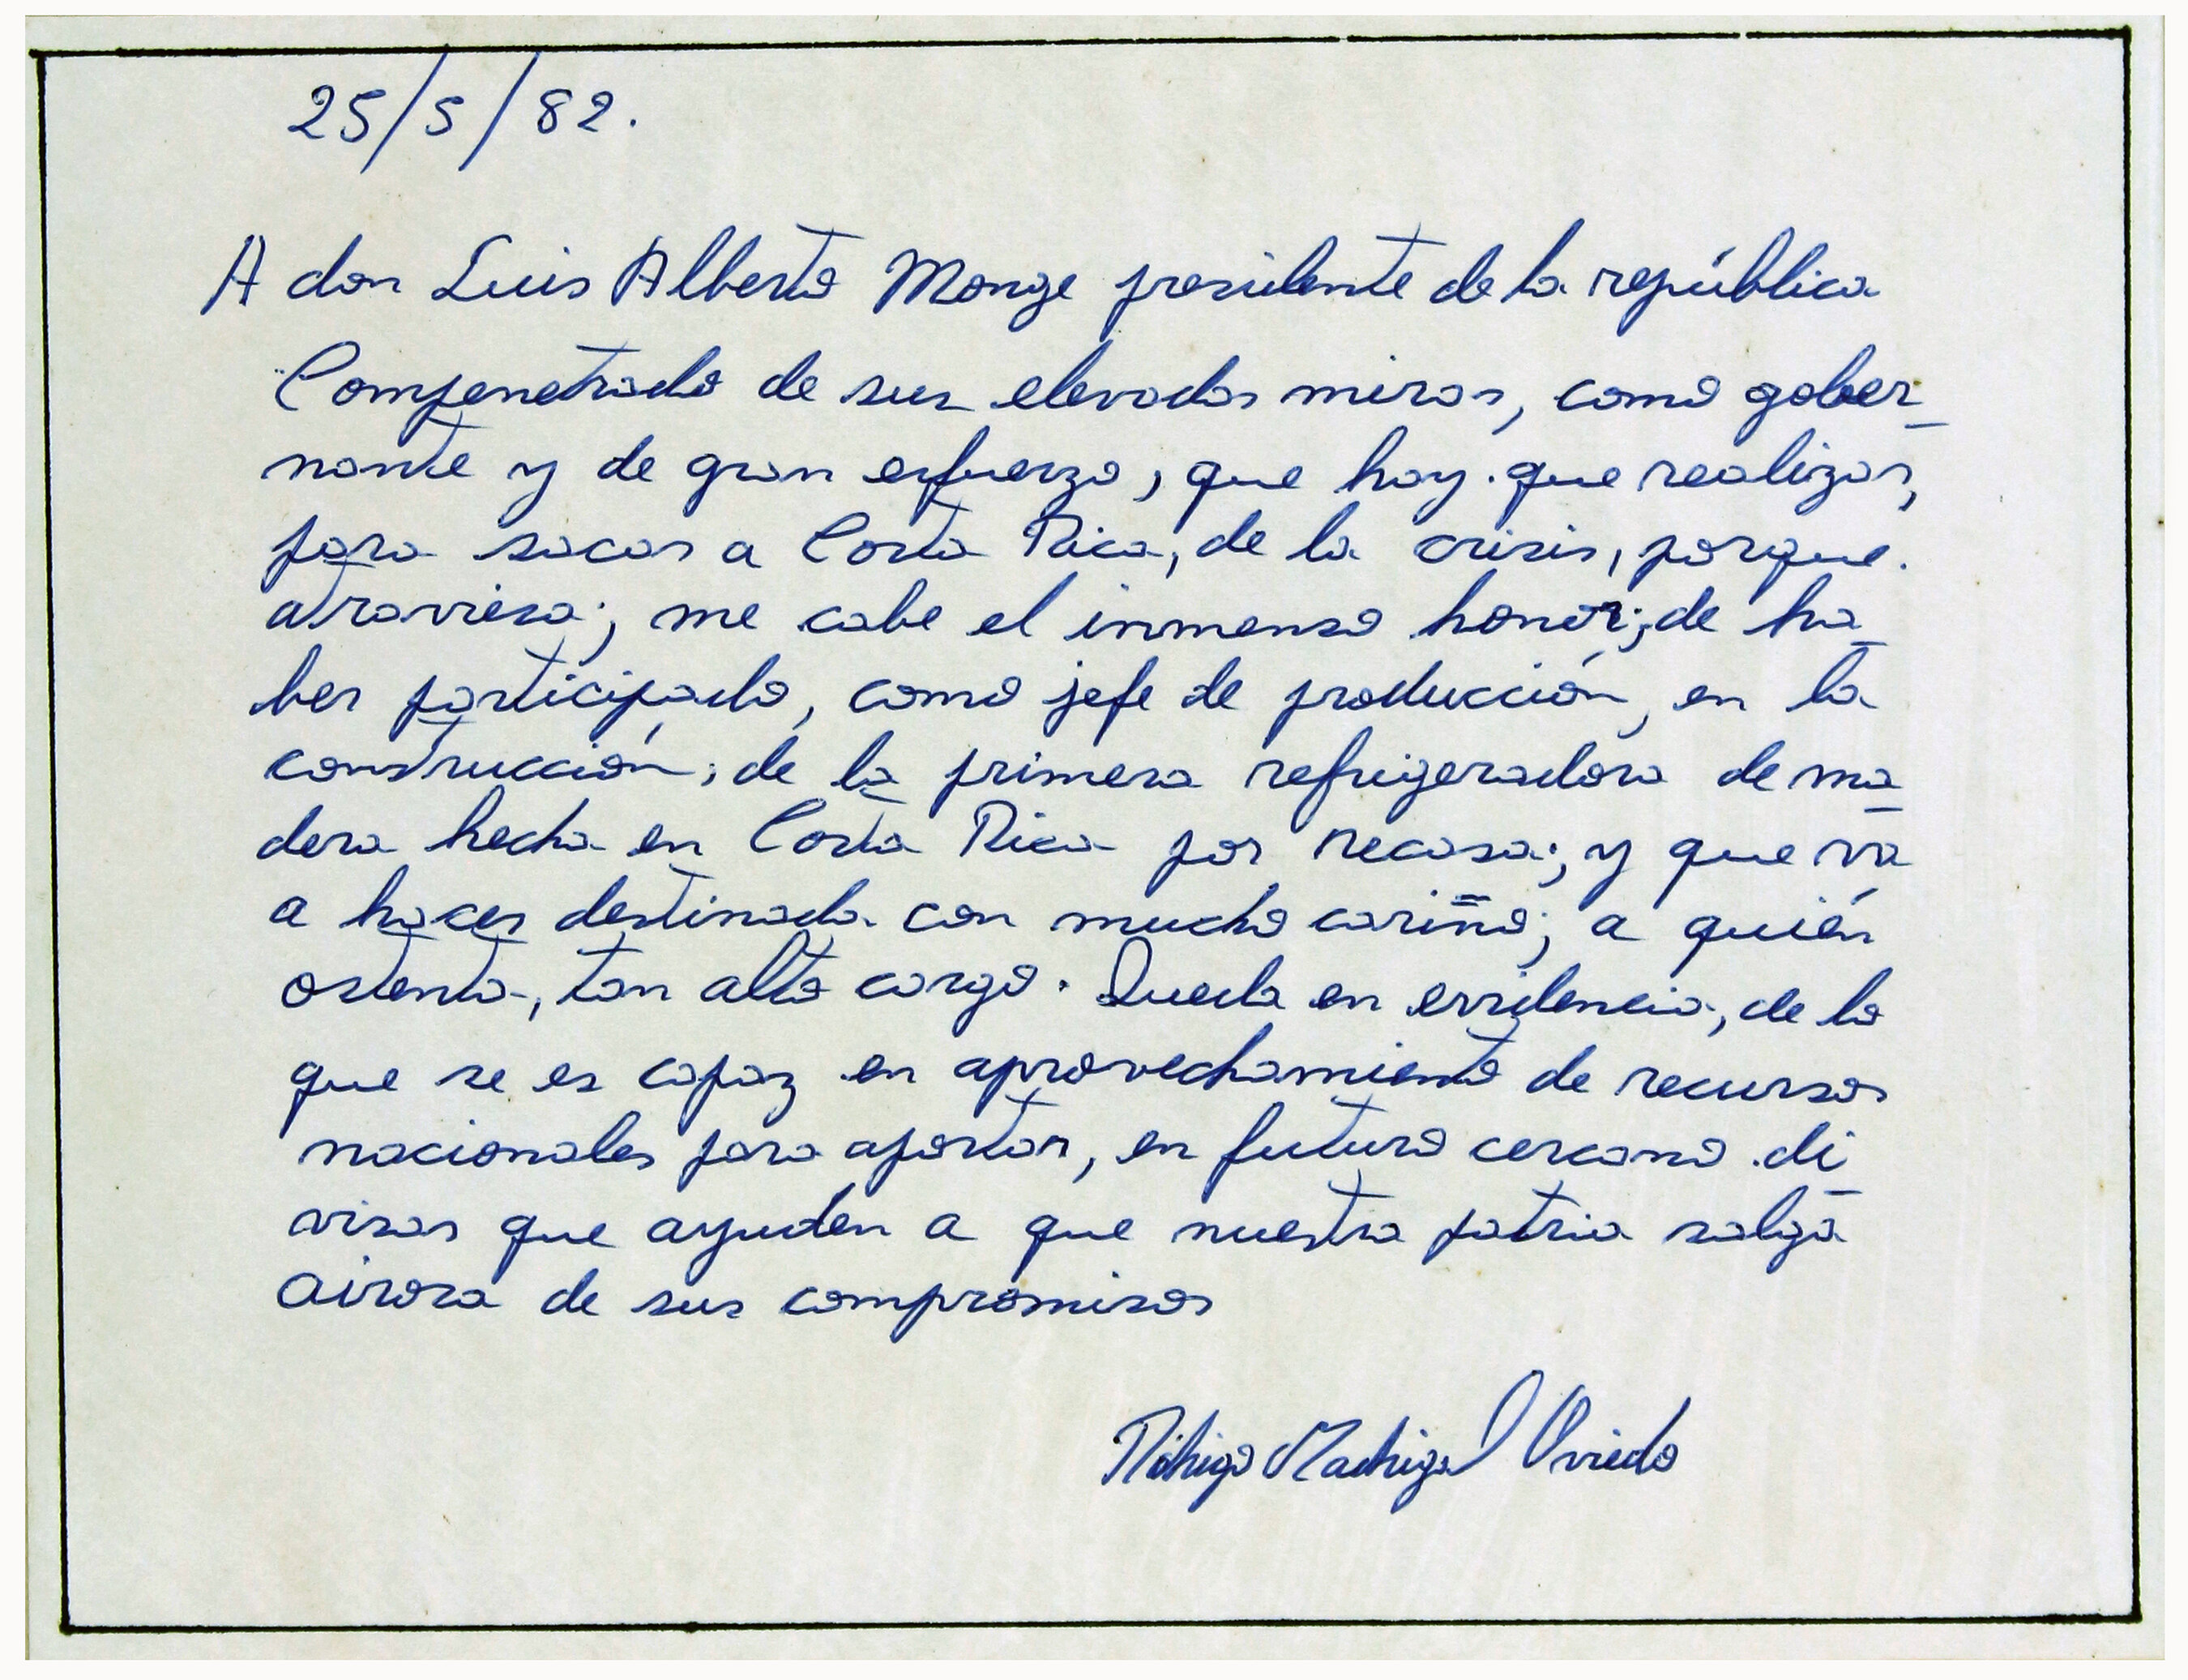 25/5/82.
A don Luis Alberto Monge presidente de la república
Compenetrado de sus elevados miras, como gober_
nante y de gran esfuerzo, que hay que realizar,
para sacar a Costa Rica, de la crisis, porque.
atraviesa; me cabe el inmenso honor; de ha_
ber participado, como jefe de producción, en la
construcción; de la primera refrigeradora de ma_
dera hecha en Costa Rica por recasa; y que va
a hacer destinada con mucho cariño; a quién
ostenta, tan alto cargo. Queda en evidencia, de lo
que se es capaz en aprovechamiento de recursos
nacionales para aportar, en futuro cercano di_
visas que ayuden a que nuestra patria salga
airosa de sus compromisos
Rodrigo Madrigal Oviedo